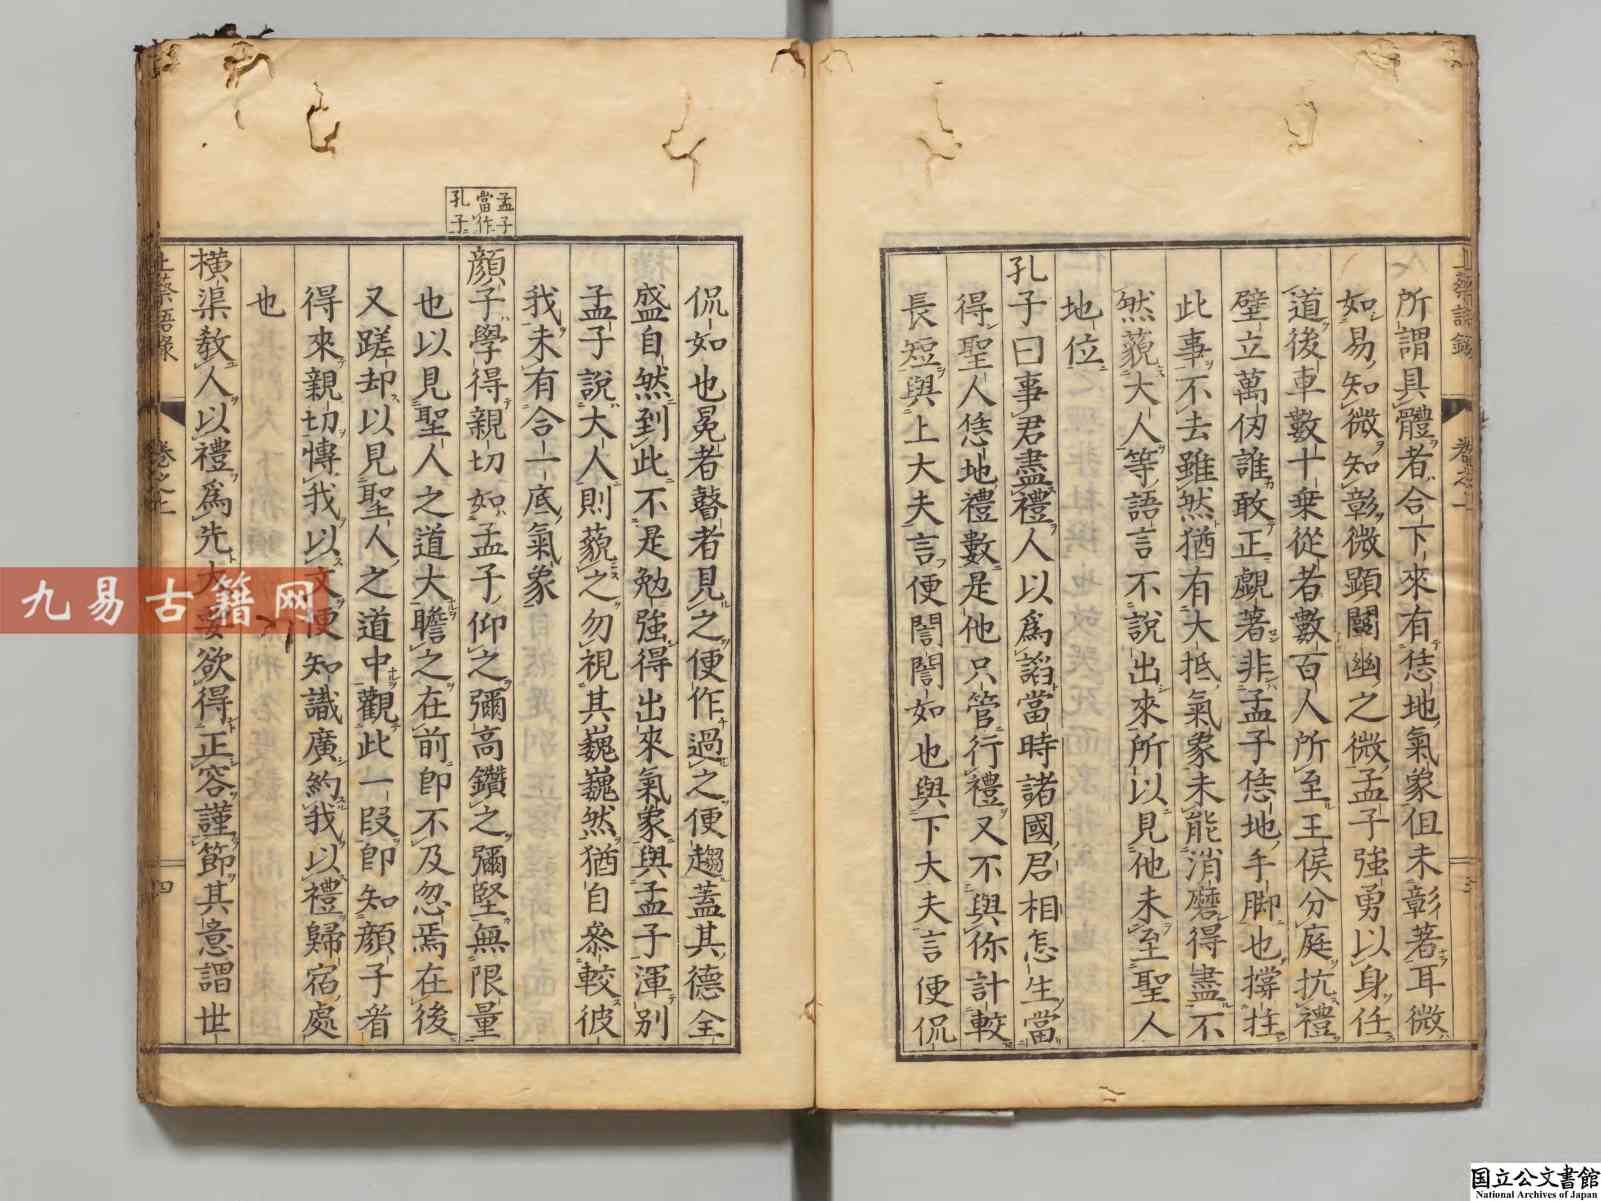 所謂具體者合下來有恁地氣象但未彰著耳微
如易知微知彰微顯闡幽之微孟子強勇以身任
道後車數十乗從者數百人所至王侯分庭抗禮
壁立萬仞誰敢正覷著非孟子恁地手脚也撐拄
此事不去雖然猶有大抵氣象未能消磨得盡不
然藐大人等語言不說出來所以見他未至聖人
地位
孔子曰事君盡禮人以爲諂當時諸國君相怎生當
得聖人恁地禮數是他只管行禮又不與你計較
長短與上大夫言便誾誾如也與下大夫言便侃
侃如也冕者瞽者見之便作過之便趨蓋其德全
盛自然到此不是勉強得出來氣象與孟子渾别
孟子說大人則藐之勿視其巍巍然猶自參較彼
我未有合一底氣象
孟子
當作
孔子
顔子學得親切如孟子仰之彌高鑽之彌堅無限量
也以見聖人之道大瞻之在前卽不及忽焉在後
又蹉却以見聖人之道中觀此一段卽知顔子者
得來親切博我以文便知識廣約我以禮歸宿處
也
横渠敎人以禮爲先大要欲得正容謹節其意謂世
上蔡語録
卷之上
四
九易古籍网
国立公文書館
National Archives of Japan